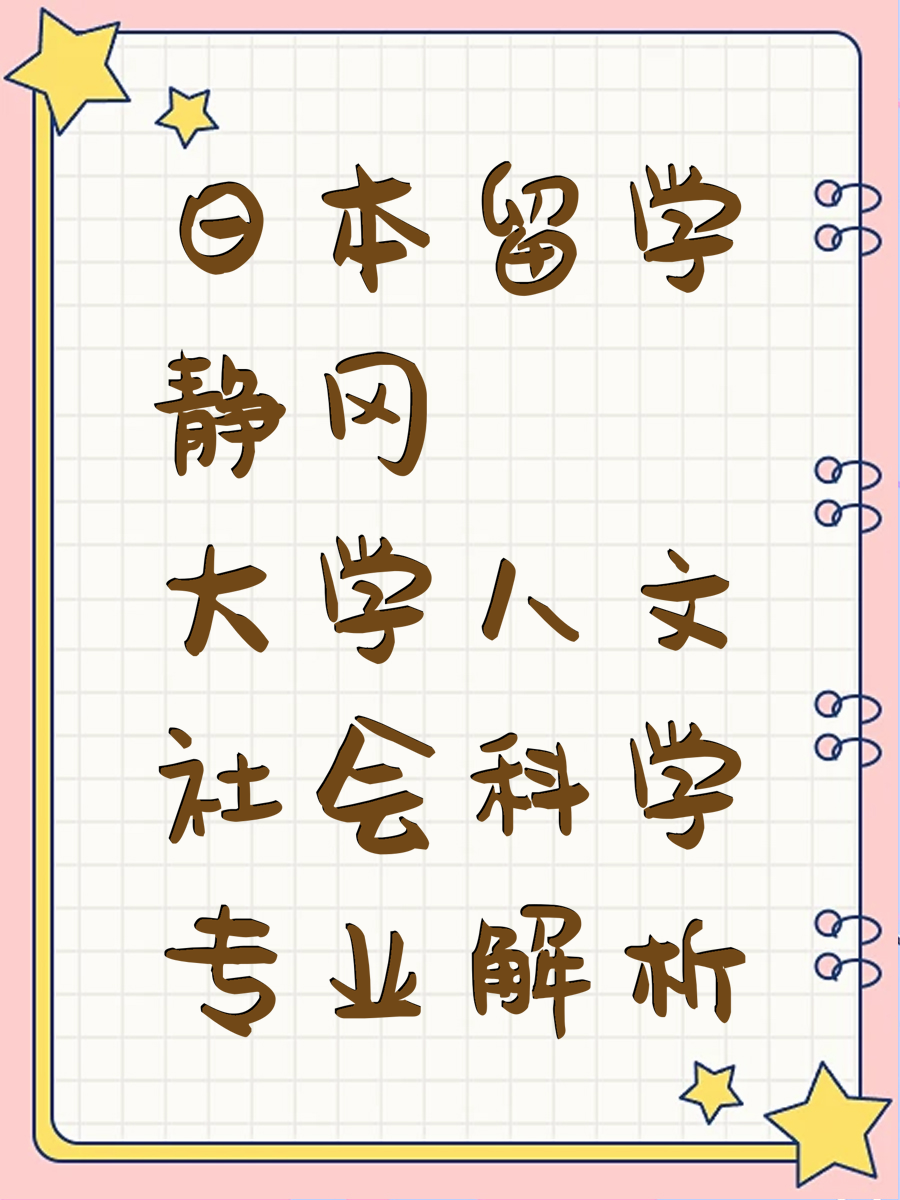 日本留学
静冈
大学人文
社会科学
专业解析